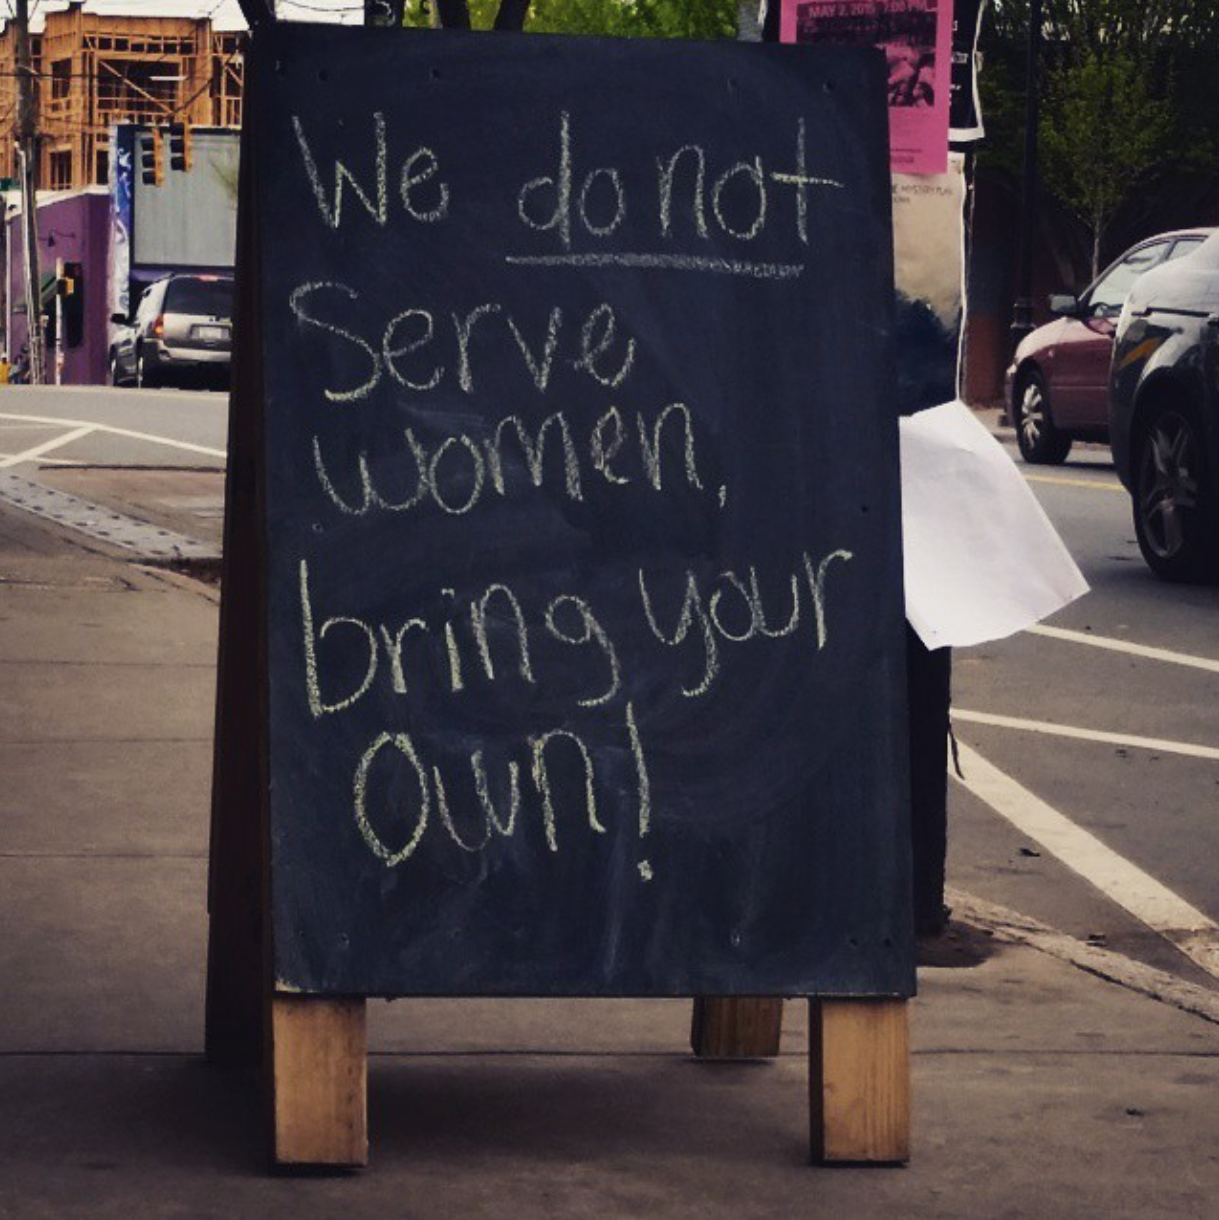 We do not
Serve
women,
bring your
own!
MAY 2, 2015 7:00 PM